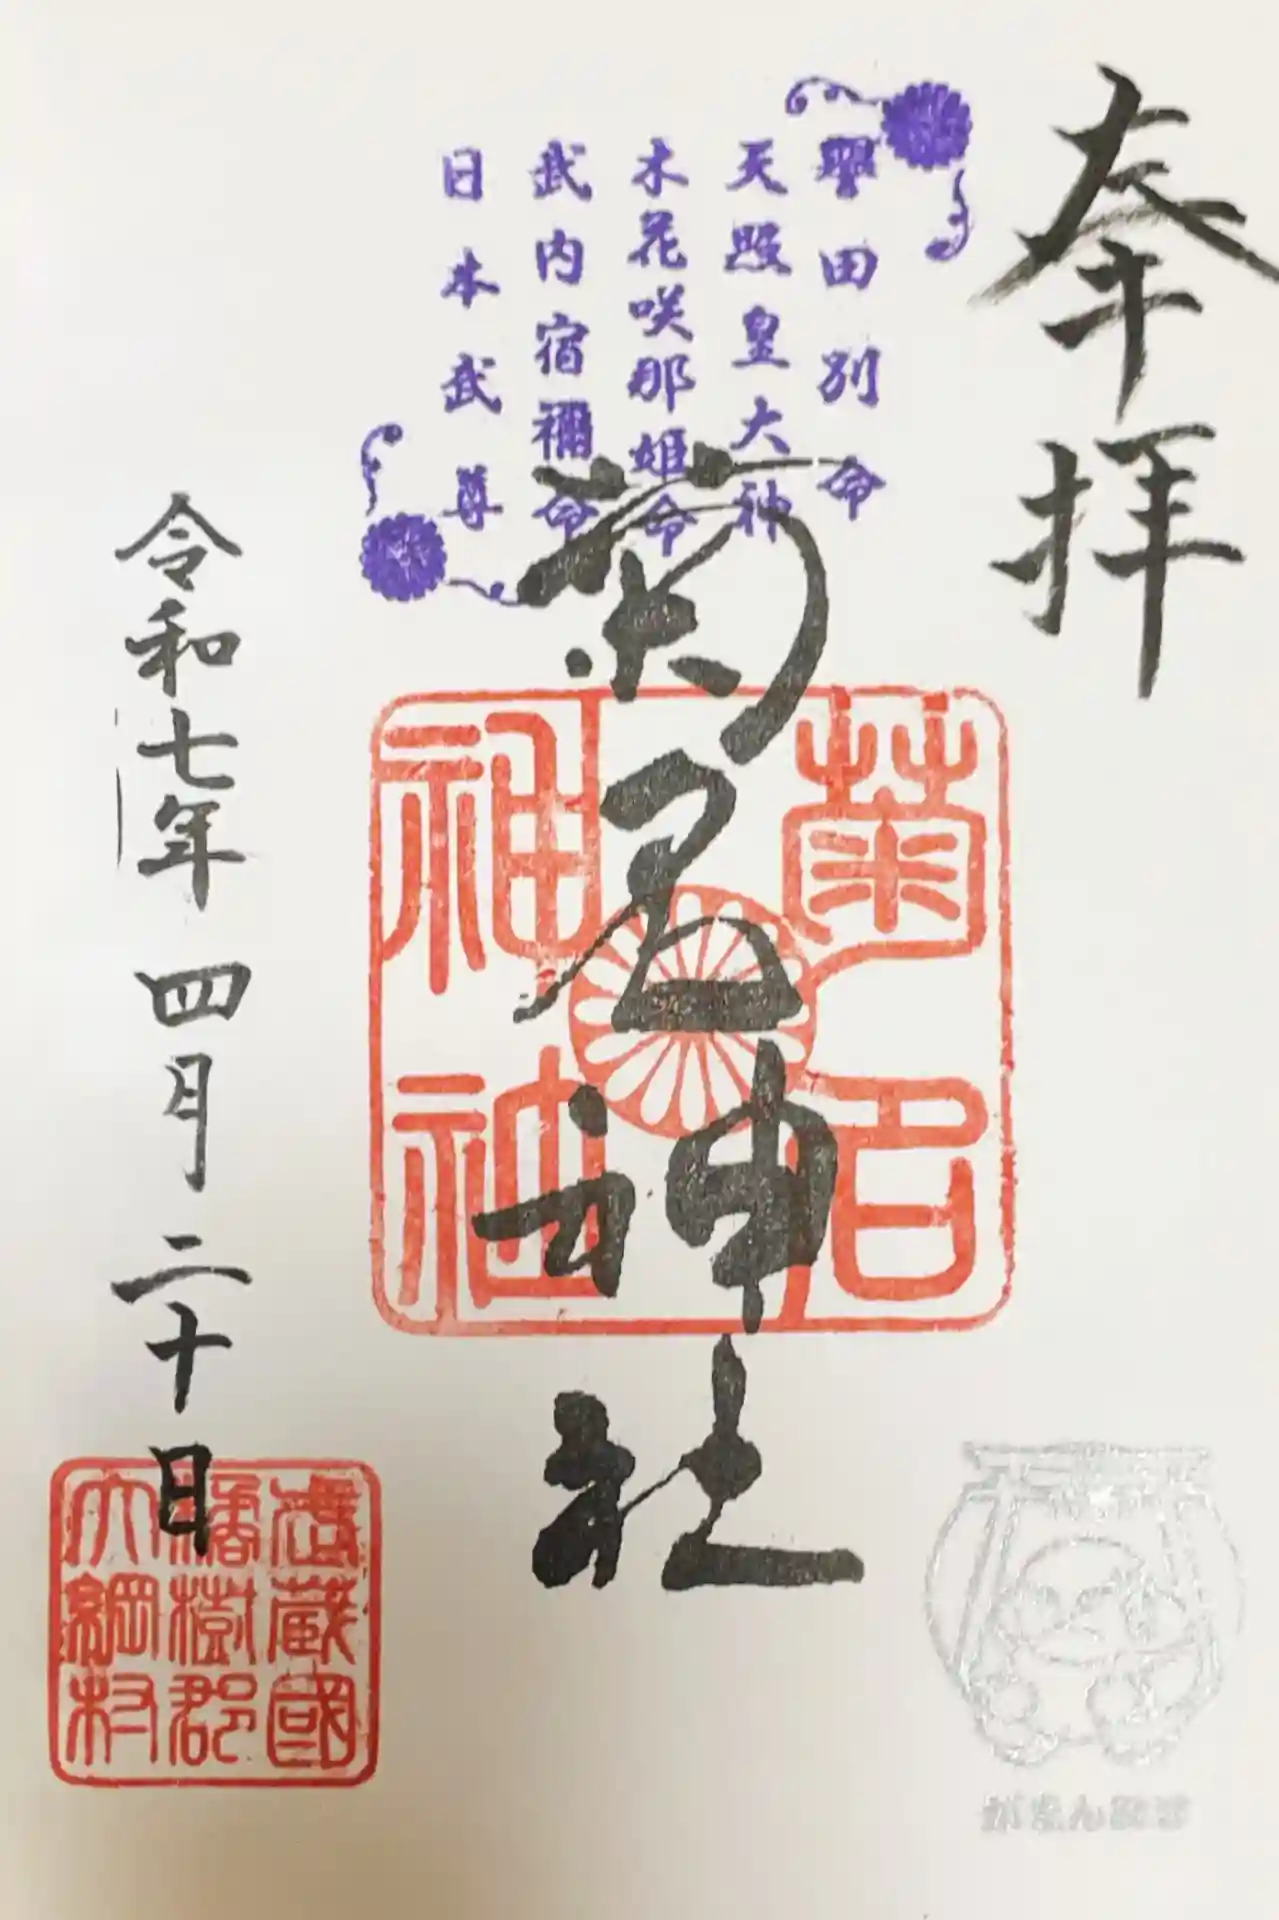 奉拝
譽田別命
天照皇大神
木花咲那姫命
武内宿禰命
日本武尊
菊名神社
菊名
神社
令和七年四月二十日
武蔵國
橘樹郡
大綱村
がまんさま